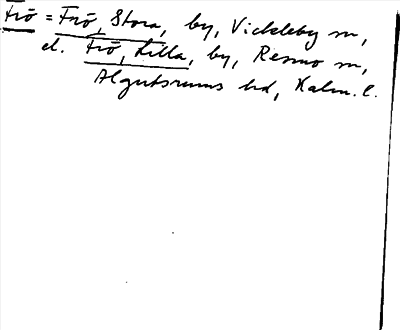 Frö = Frö, Stora, by, Vickleby sn,
el. Frö, Lilla, by, Resmo sn,
Algutsrums hd, Kalm. l.